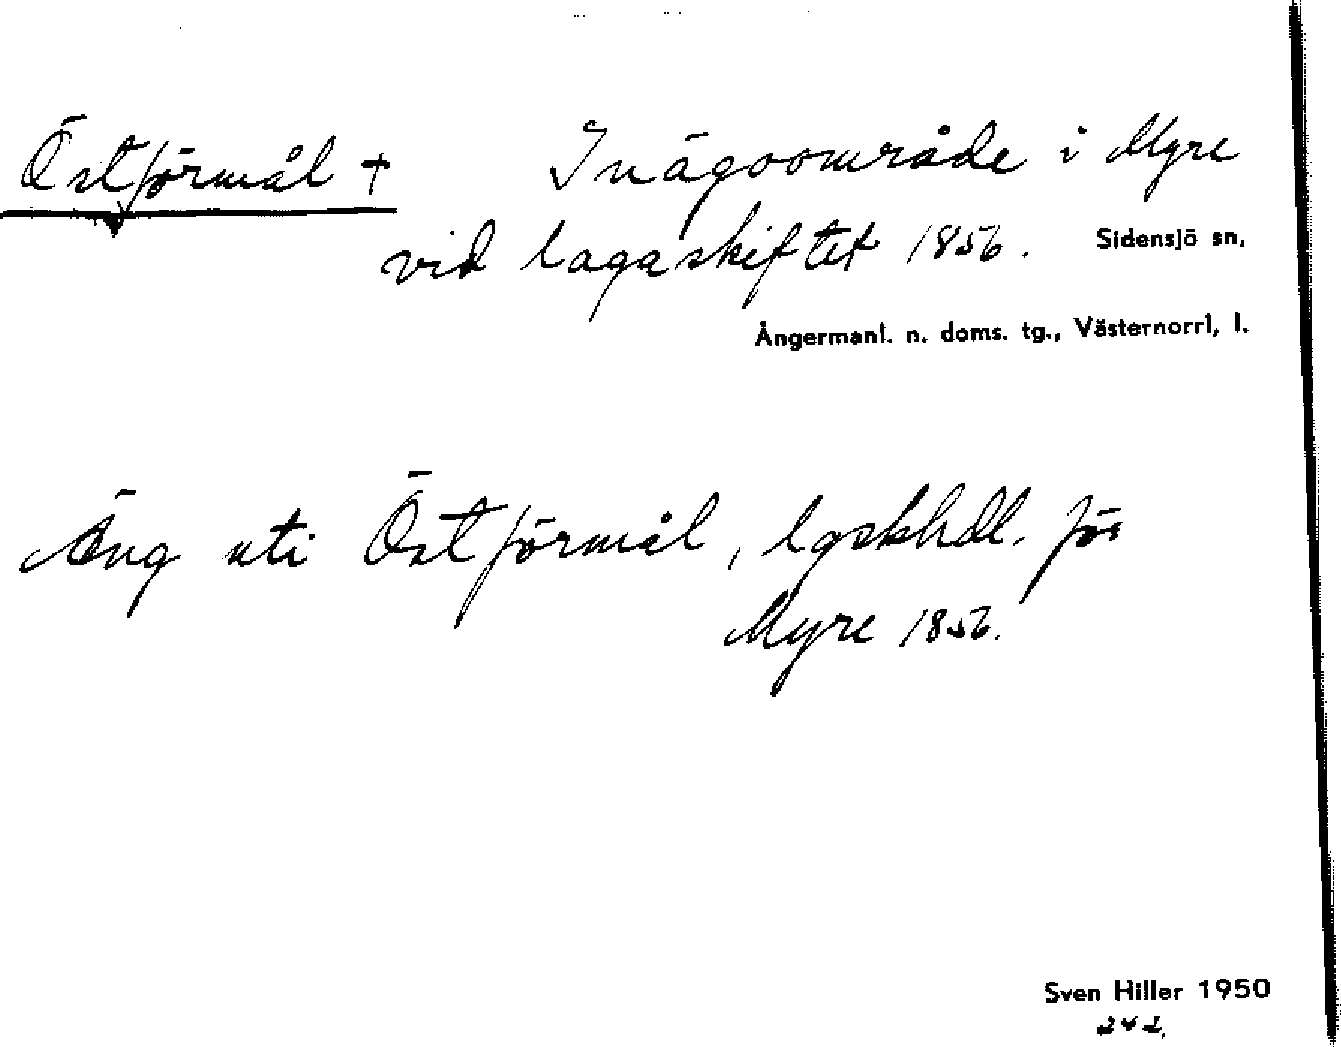 Östförmål + Inägoområde i Myre
vid lagaskiftet 1856. Sidensjö sn,
Ångermanl. n. doms. tg., Västernorrl, l.
Äng uti Östförmål, lgskhdl. för
Myre 1856.
Sven Hiller 1950
242.